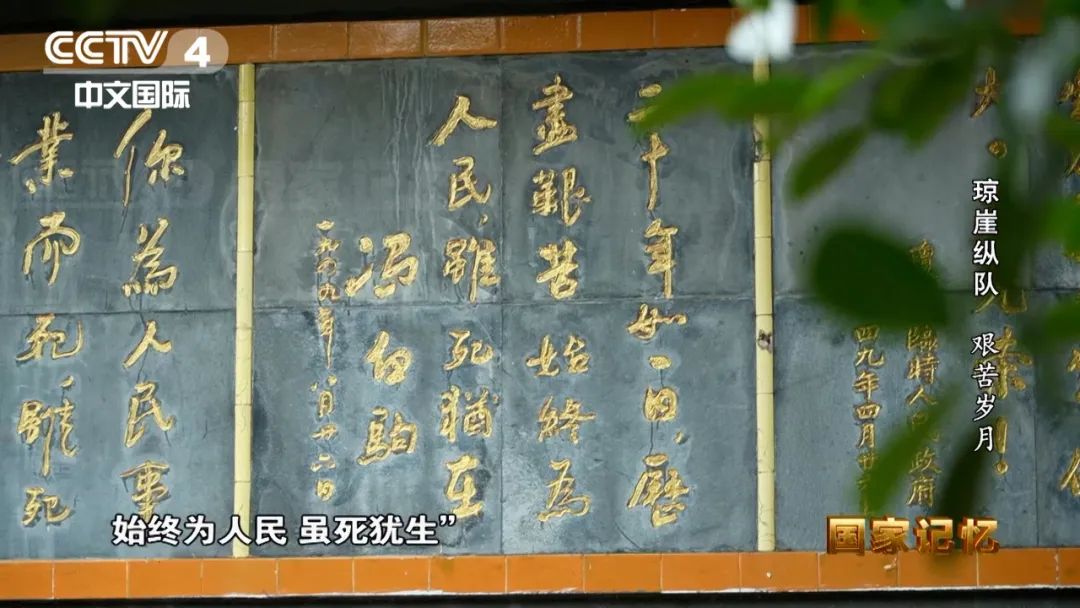 CCTV 4
中文国际
琼崖纵队 艰苦岁月
臨時人民政府
四九年四月廿
二十年如一日，歷
盡艱苦始終為
人民，雖死猶在
馮白駒
一九四九年八月廿六日
你為人民事
業而死，雖死
始终为人民 虽死犹生”
国家记忆